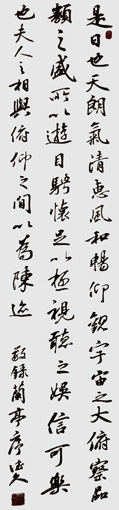 是日也天朗氣清惠風和暢仰觀宇宙之大俯察品
類之盛所以遊目騁懷足以極視聽之娛信可樂
也夫人之相與俯仰之間以為陳迹
敬錄蘭亭序